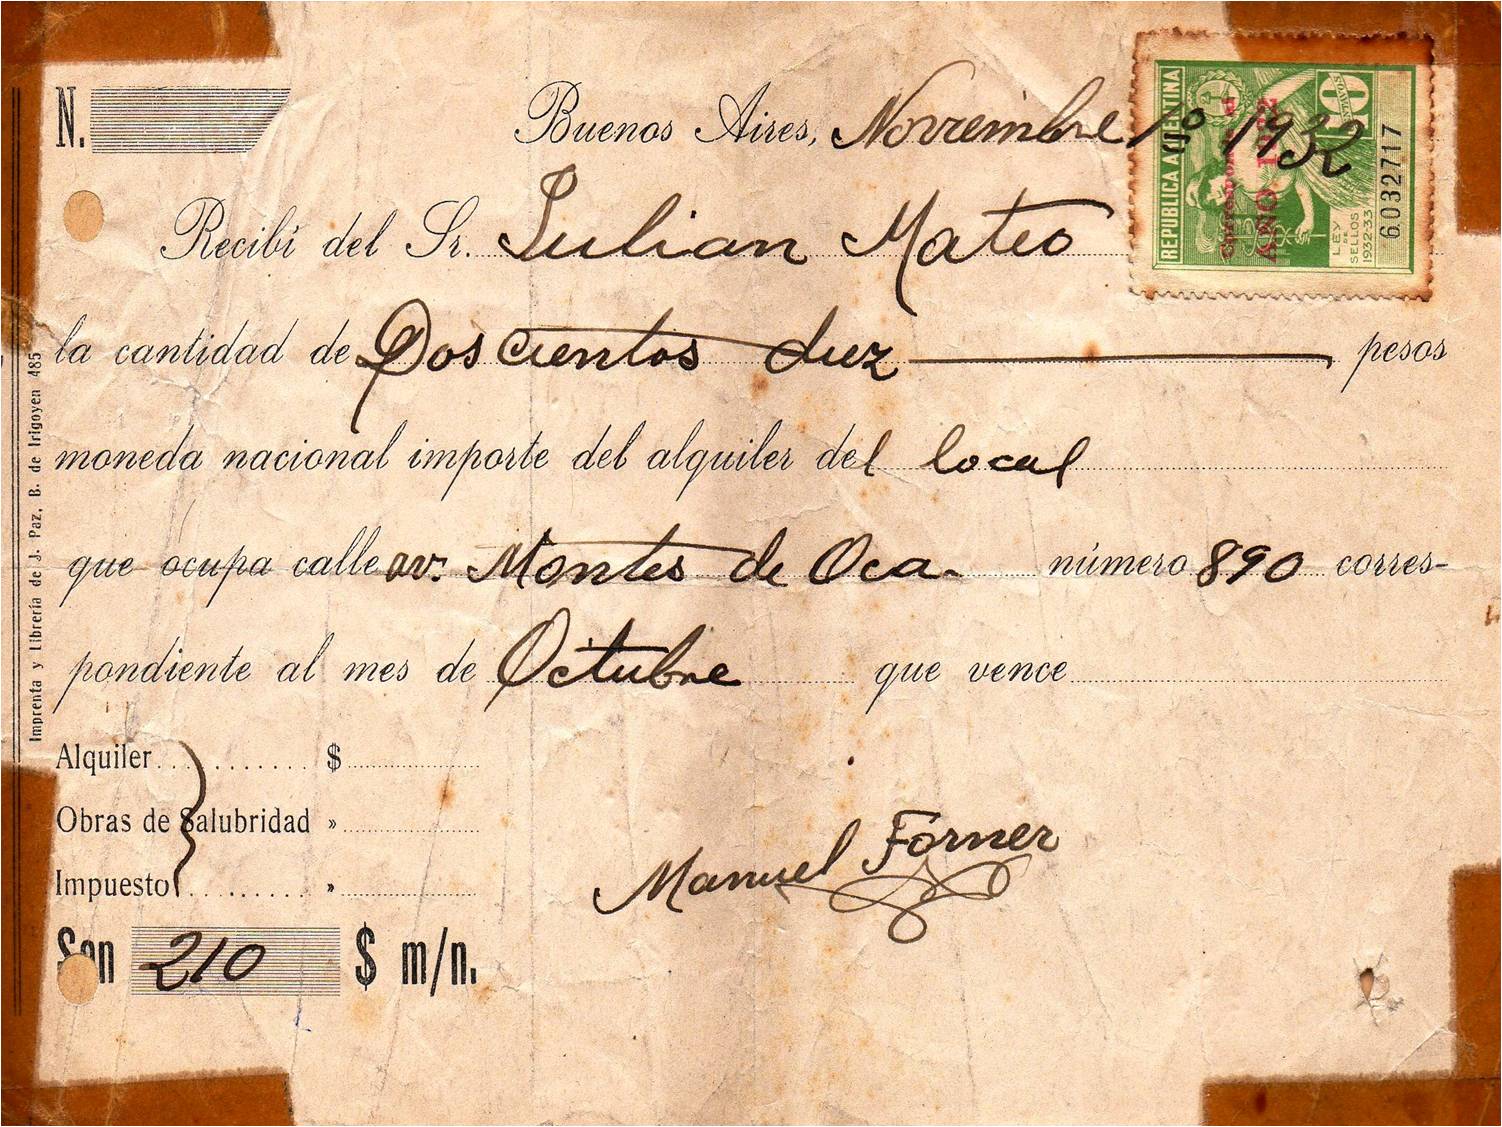 N.
Buenos Aires, Noviembre 1º 1932
Recibí del Sr. Julian Mateo
la cantidad de Doscientos diez pesos
moneda nacional importe del alquiler del local
que ocupa calle av. Montes de Oca número 890 corres-
pondiente al mes de Octubre que vence
Alquiler.......... $
Obras de Salubridad »
Impuesto.......... »
Son 210 $ m/n.
Manuel Forner
Imprenta y Librería de J. Paz, B. de Irigoyen 485
REPUBLICA ARGENTINA
AÑO 1932
10
LEY DE SELLOS 1932-33
6032717